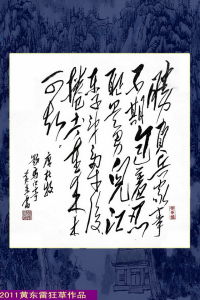 勝敗兵家事
不期包羞忍
耻是男兒江
東子弟多才俊
捲土重來未
可知
唐杜牧
題烏江亭
2011黄东雷狂草作品